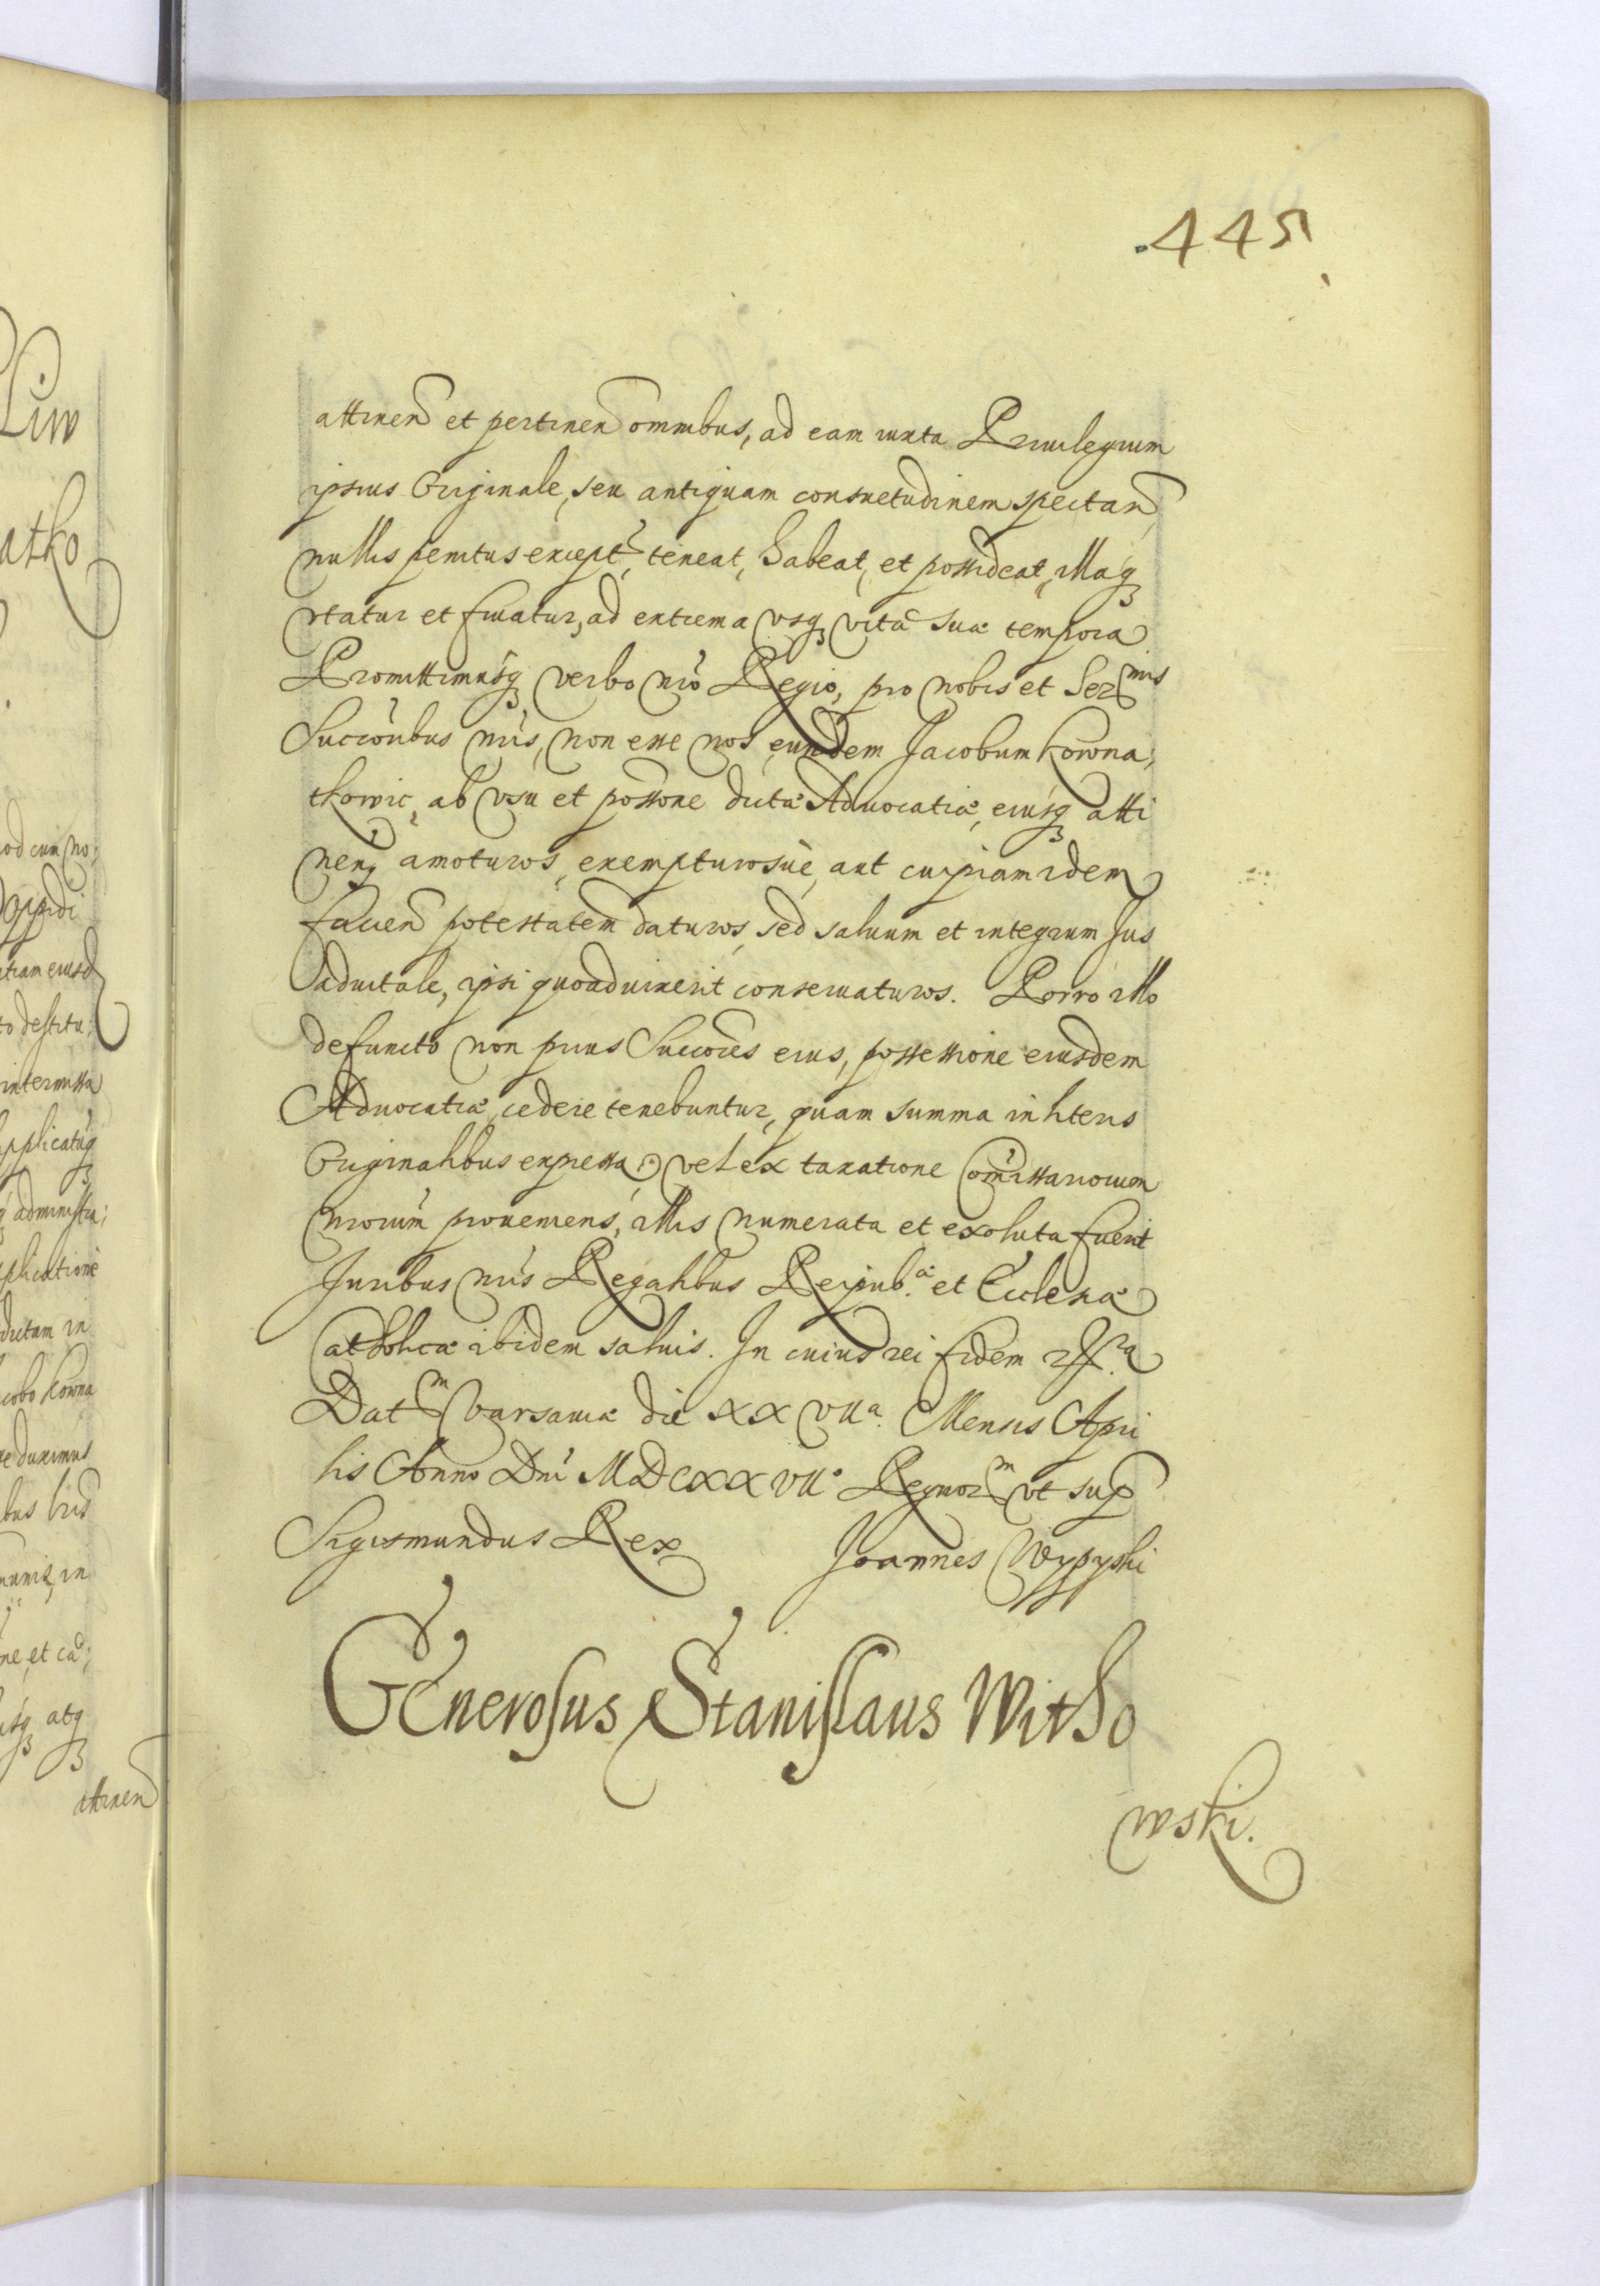 445
attinen et pertinen omnibus, ad eam iuxta Priuilegium
ipsius Originale, seu antiquam consuetudinem spectan
nullis penitus except, teneat, habeat, et possideat, illaq
vtatur et fruatur, ad extrema vsq vitæ suæ tempora
Promittimusq verbo nro Regio, pro nobis et Ser mis
Succoribus nris, non esse nos eundem Jacobum Kowna,
tkowic, ab vsu et possone dictæ Aduocatiæ, eiusq atti
nen, amoturos, exempturosue, aut cuipiam idem
faciend potestatem daturos, sed saluum et integrum Jus
aduitale, ipsi quoaduixerit conseruaturos. Porro illo
defuncto non prius Succores eius, possessione eiusdem
Aduocatiæ, cedere tenebuntur, quam summa in literis
Originalibus expressa, vel ex taxatione Comissariorum
nrorum proueniens, illis numerata et exoluta fuerit
Juribus nris Regalibus Reipub. æ et Ecclesiæ
Catholicæ ibidem saluis. In cuius rei fidem
Dat m Varsauiæ die XXVII a. Mensis Apri
lis Anno Dni MDCXXVII o Regnor m vt sup
Sigismundus Rex Joannes Wypyski
Generosus Stanislaus Witho
wski.
Liw
atko
od cum no,
Oppidi
tiam eiusd
to destitu,
intermissa
applicatuq
administra,
plicatione
dictam in
cobo Kowna
duximus
bus
in
et
atq
attinen